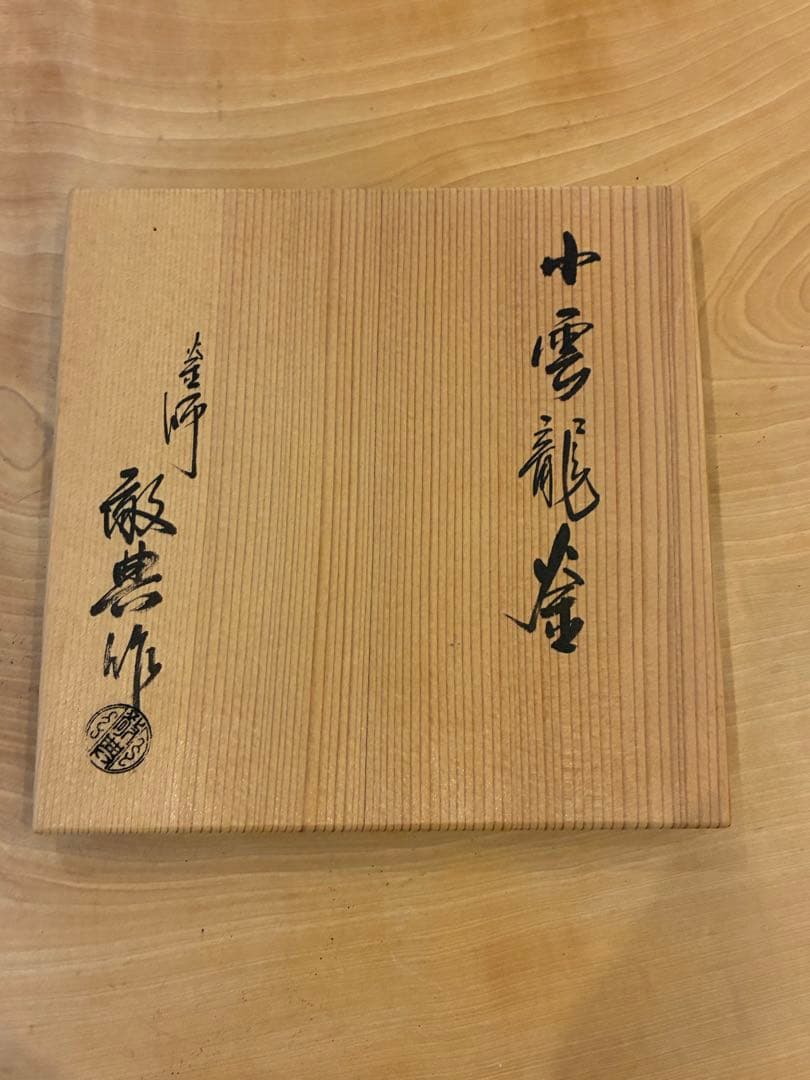 小雲龍釜
釜師
敬典作
敬典